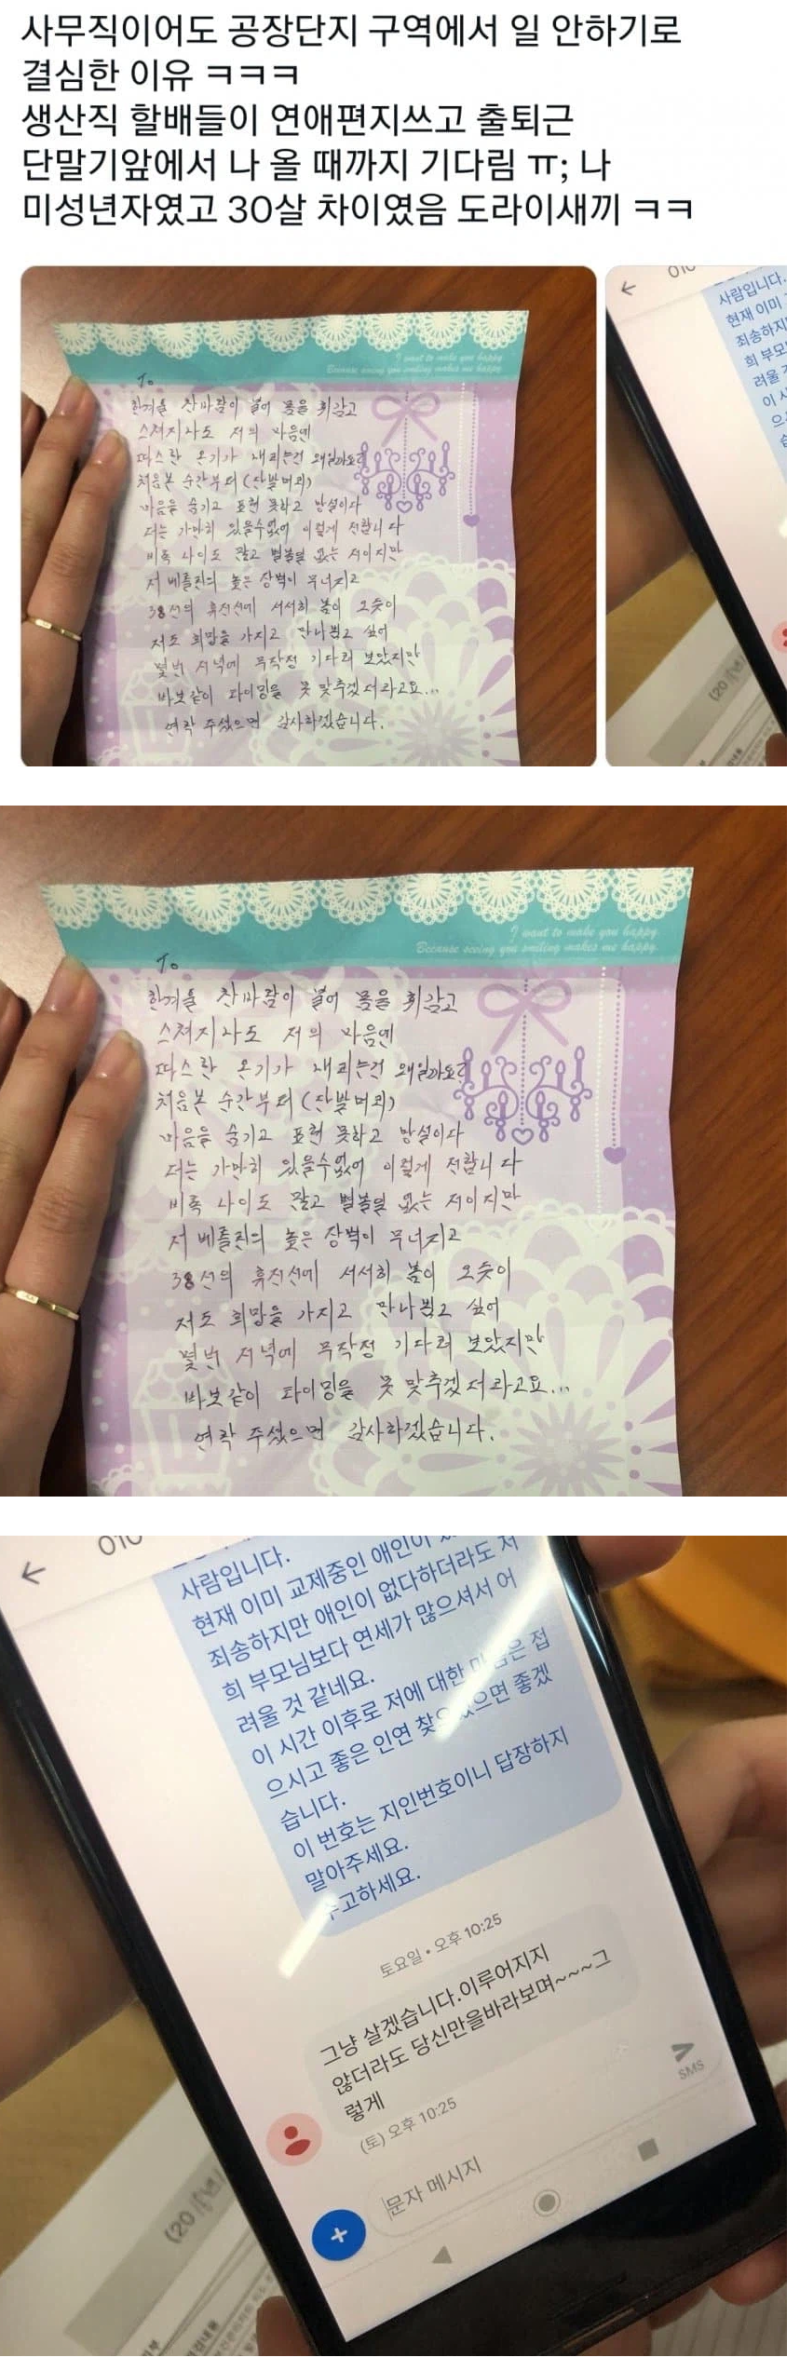 사무직이어도 공장단지 구역에서 일 안하기로
결심한 이유 ㅋㅋㅋ
생산직 할배들이 연애편지쓰고 출퇴근
단말기앞에서 나 올 때까지 기다림 ㅠ; 나
미성년자였고 30살 차이였음 도라이새끼 ㅋㅋ
I want to make you happy
Because seeing you smiling makes me happy
To
한겨울 찬바람이 불어 몸을 휘감고
스쳐지나도 저의 마음엔
따스한 온기가 내리는건 왜일까요?
처음본 순간부터 (단발머리)
마음을 숨기고 표현 못하고 망설이다
더는 가만히 있을수없어 이렇게 전합니다
비록 나이도 많고 별볼일 없는 저이지만
저 베를린의 높은 장벽이 무너지고
38선의 휴전선에 서서히 봄이 오듯이
저도 희망을 가지고 만나뵙고 싶어
몇번 저녁에 무작정 기다려 보았지만
바보같이 타이밍을 못 맞추겠더라고요...
연락 주셨으면 감사하겠습니다.
← 010
사람입니다.
현재 이미
죄송하지만
희 부모
려울
이 시
으
습
(20
I want to make you happy
Because seeing you smiling makes me happy
To
한겨울 찬바람이 불어 몸을 휘감고
스쳐지나도 저의 마음엔
따스한 온기가 내리는건 왜일까요?
처음본 순간부터 (단발머리)
마음을 숨기고 표현 못하고 망설이다
더는 가만히 있을수없어 이렇게 전합니다
비록 나이도 많고 별볼일 없는 저이지만
저 베를린의 높은 장벽이 무너지고
38선의 휴전선에 서서히 봄이 오듯이
저도 희망을 가지고 만나뵙고 싶어
몇번 저녁에 무작정 기다려 보았지만
바보같이 타이밍을 못 맞추겠더라고요...
연락 주셨으면 감사하겠습니다.
← 010
사람입니다.
현재 이미 교제중인 애인이
죄송하지만 애인이 없다하더라도 저
희 부모님보다 연세가 많으셔서 어
려울 것 같네요.
이 시간 이후로 저에 대한 은 접
으시고 좋은 인연 찾 으면 좋겠
습니다.
이 번호는 지인번호이니 답장하지
말아주세요.
수고하세요.
토요일 • 오후 10:25
그냥 살겠습니다.이루어지지
않더라도 당신만을바라보며~~~그
렇게
(토) 오후 10:25
문자 메시지
SMS
(20 년